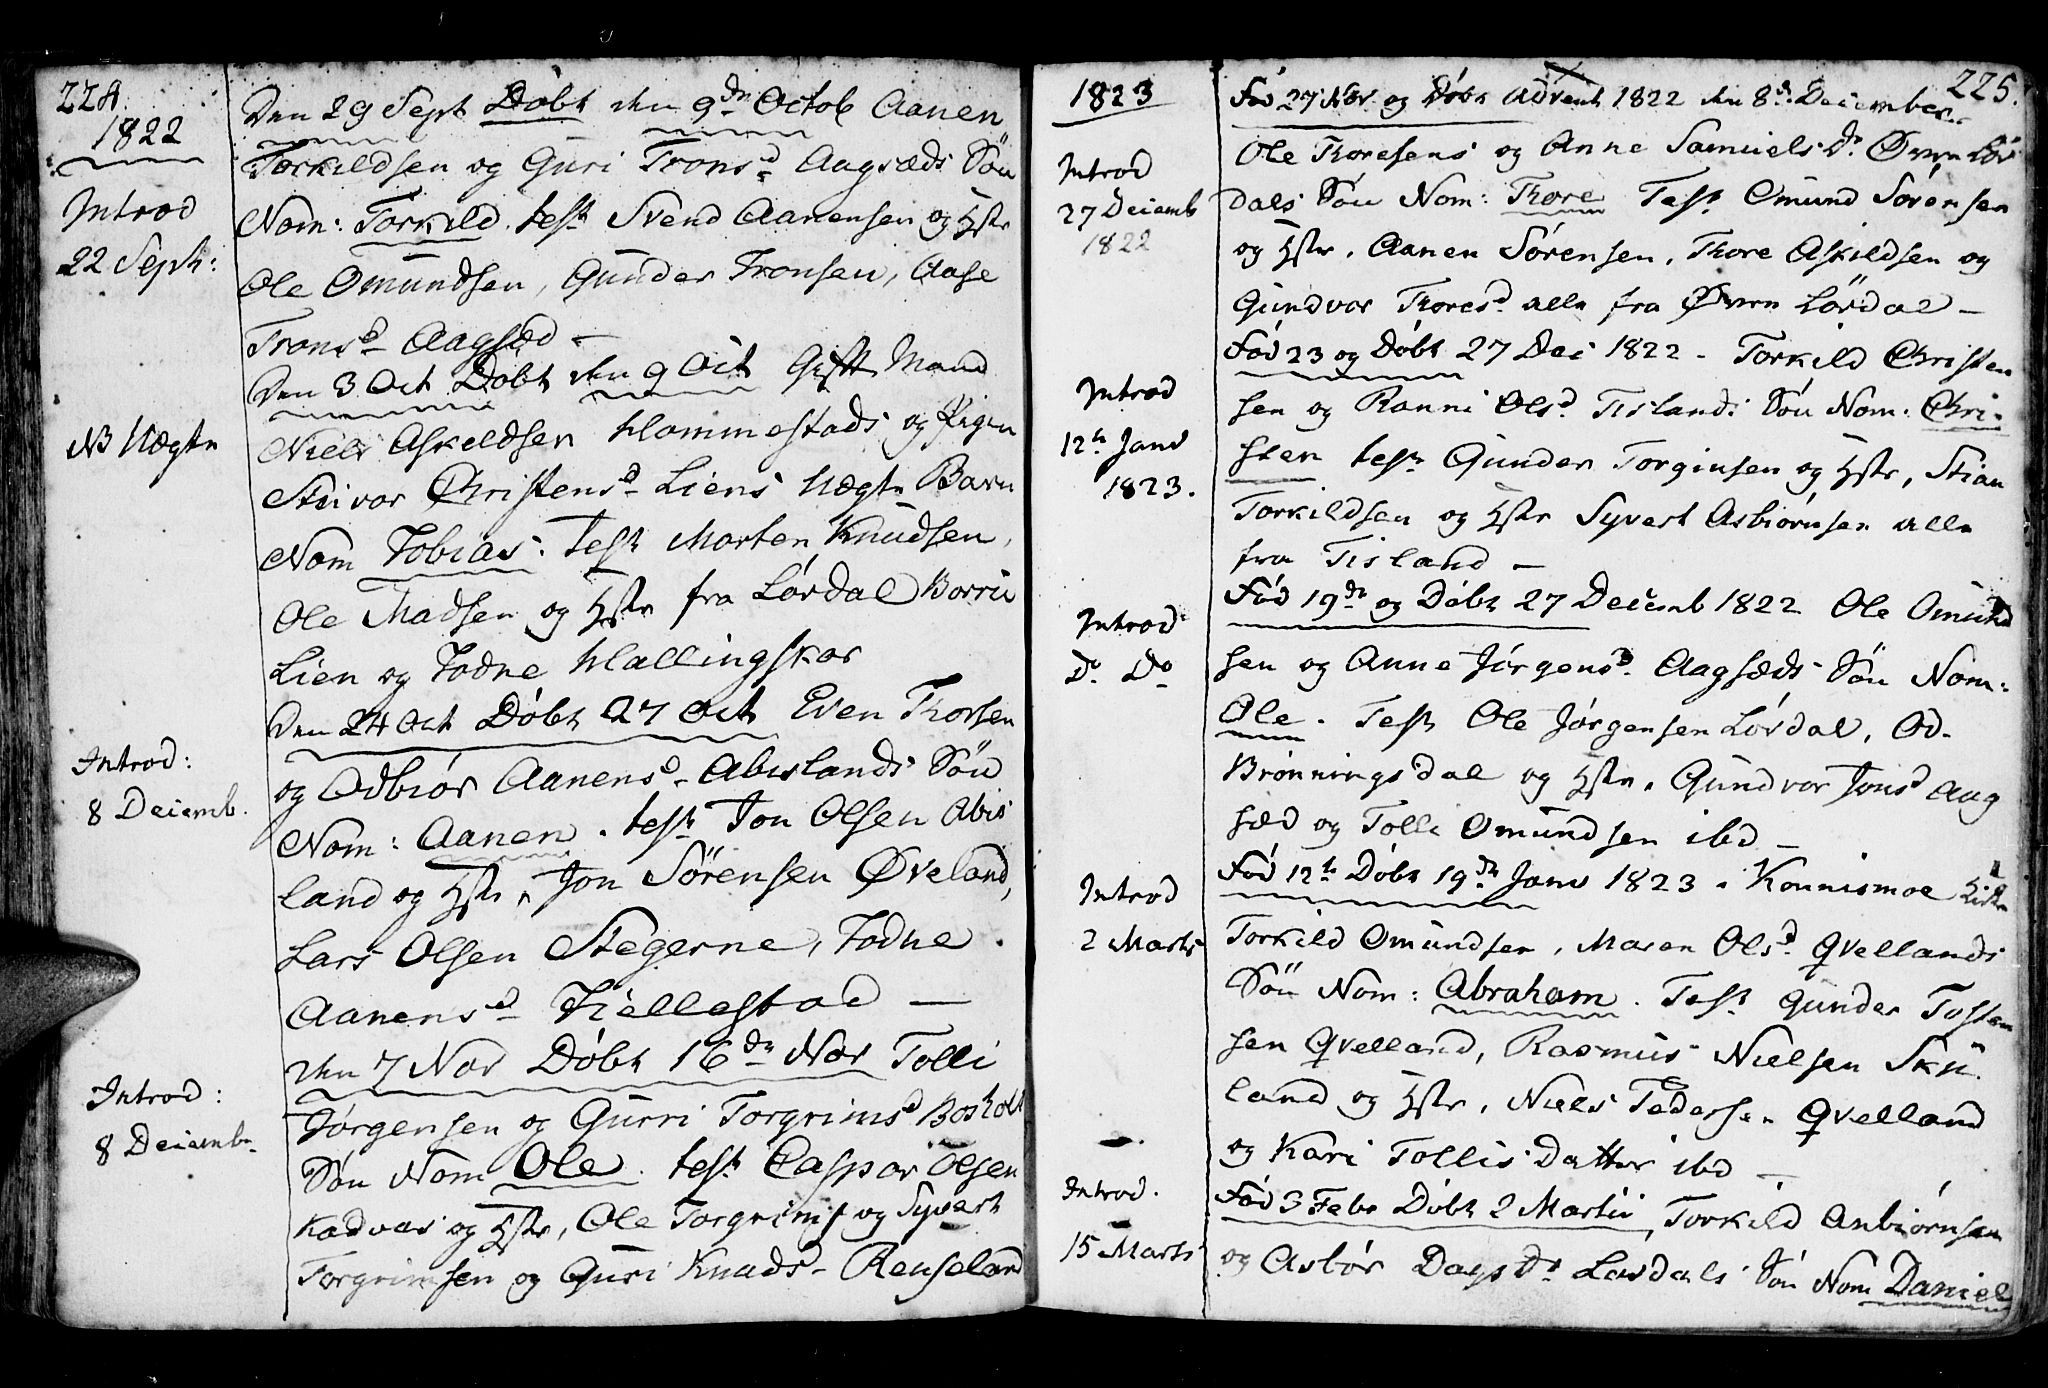 224.
1822
Introd
22 Sept:
NB Uægte
Introd:
8 Decemb.
Introd:
8 Decembr
Den 29 Sept Døbt den 9de Octob Aanen
Torkildsen og Guri Tronsd Aagsæds Sön
Nom: Torkild. test Svend Aanensen og Hstr
Ole Omundsen, Gunder Tronsen, Aase
Tronsd Aagsæd —
Den 3 Oct Døbt den 9 Oct Gift Mand
Niels Askeldsen Hommestads og Pigen
Christensd Liens Uægte Barn
Nom Tobias. test Morten Knudsen,
Ole Madsen og Hstr fra Lördal
Lien og Todne Hallingskar
Den 24 Oct Døbt 27 Oct Even Thorsen
og Odbiør Aanensd Abislands Sön
Nom: Aanen. test Jon Olsen Abis
land og Hstr, Jon Sörensen Øveland,
Lars Olsen Stegerne, Todne.
Aanensd Kiellestad —
den 7 Nov Døbt 16de Nov Tolli
Jørgensen og Gurri Torgrimsd Bosholt
Sön Nom Ole. test Caspar Olsen
Kadvas og Hstr, Ole Torgrims og Syvert
Torgrimsen og Guri Knuds- Renseland
225.
1823
Introd
27 Decemb
1822
Introd
12te Janv
1823.
Introd
Do Do
Introd
2 Marts
Introd.
15 Marts
Fød 27 Nov. og Døbt Advent 1822 den 8de December
Ole Thoresens og Anne Samuels Dr Øvre Lör
dals Sön Nom: Thore Test Omund Sörensen
og Hstr. Aanen Sørensen, Thore Askildsen og
Gundvor Thoresd alle fra Øvre Lördal —
Fød 23 og Døbt 27 Dec 1822 - Torkild Christen
sen og Ranni Olsd Tislands Sön Nom: Chri-
sten test Gunder Torginsen og Hstr, Stian
Torkildsen og Hstr Syvert Asbiørnsen alle
fra Tisland —
Fød 19de og Døbt 27 Decemb 1822 Ole Omund
sen og Anne Jørgensd. Aagsæds Sön Nom:
Ole. Test Ole Jörgensen Lördal, Od-
Brönningsdal og Hstr. Gundvor Jonsd Aag
sæd og Tolli Omundsen ibd —
Fød 12te Døbt 19de Janv 1823. Konnismoe Kirke
Torkild Omundsen, Maren Olsd Qvellands
Sön Nom: Abraham. Test Gunder Tosten
sen Qvelland, Rasmus Nielsen Sku
land og Hstr, Niels Pedersen Qvelland
og Kari Tollis Datter ibd —
Fød 3 Febr Døbt 2 Martii, Torkild Anbiørnsen
og Asbør Dags Dr Lordals Sön Nom Daniel